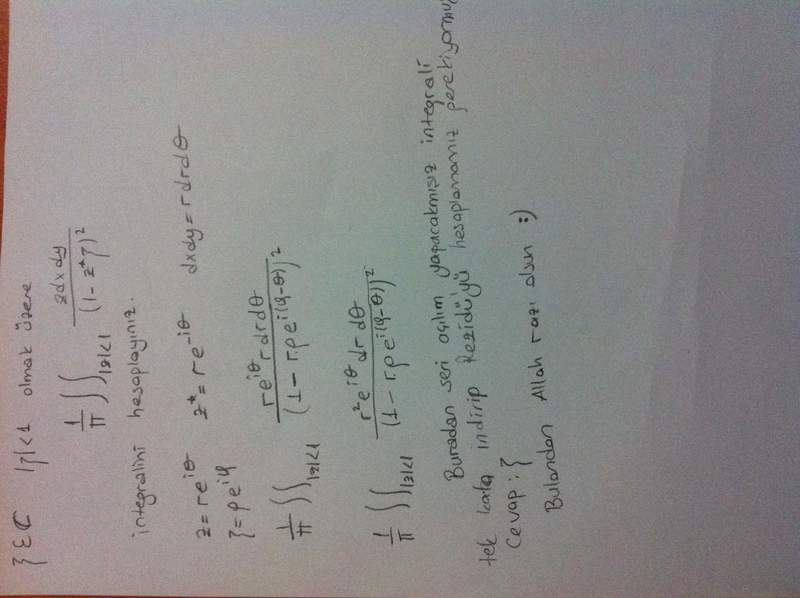 ζ ∈ ℂ |ζ|<1 olmak üzere
1/π ∫∫_{|z|<1} z dx dy / (1 - z*ζ)²
integralini hesaplayınız.
z = re^{iθ} z* = re^{-iθ} dxdy = rdrdθ
ζ = ρe^{iφ}
1/π ∫∫_{|z|<1} re^{iθ} r dr dθ / (1 - r.ρ e^{i(φ-θ)})²
1/π ∫∫_{|z|<1} r² e^{iθ} dr dθ / (1 - r.ρ e^{i(φ-θ)})²
Buradan seri açılım yapacakmışız integrali
tek kata indirip Rezidü'yü hesaplamamız gerekiyormuş
Cevap: ζ
Bulandan Allah razı olsun :)